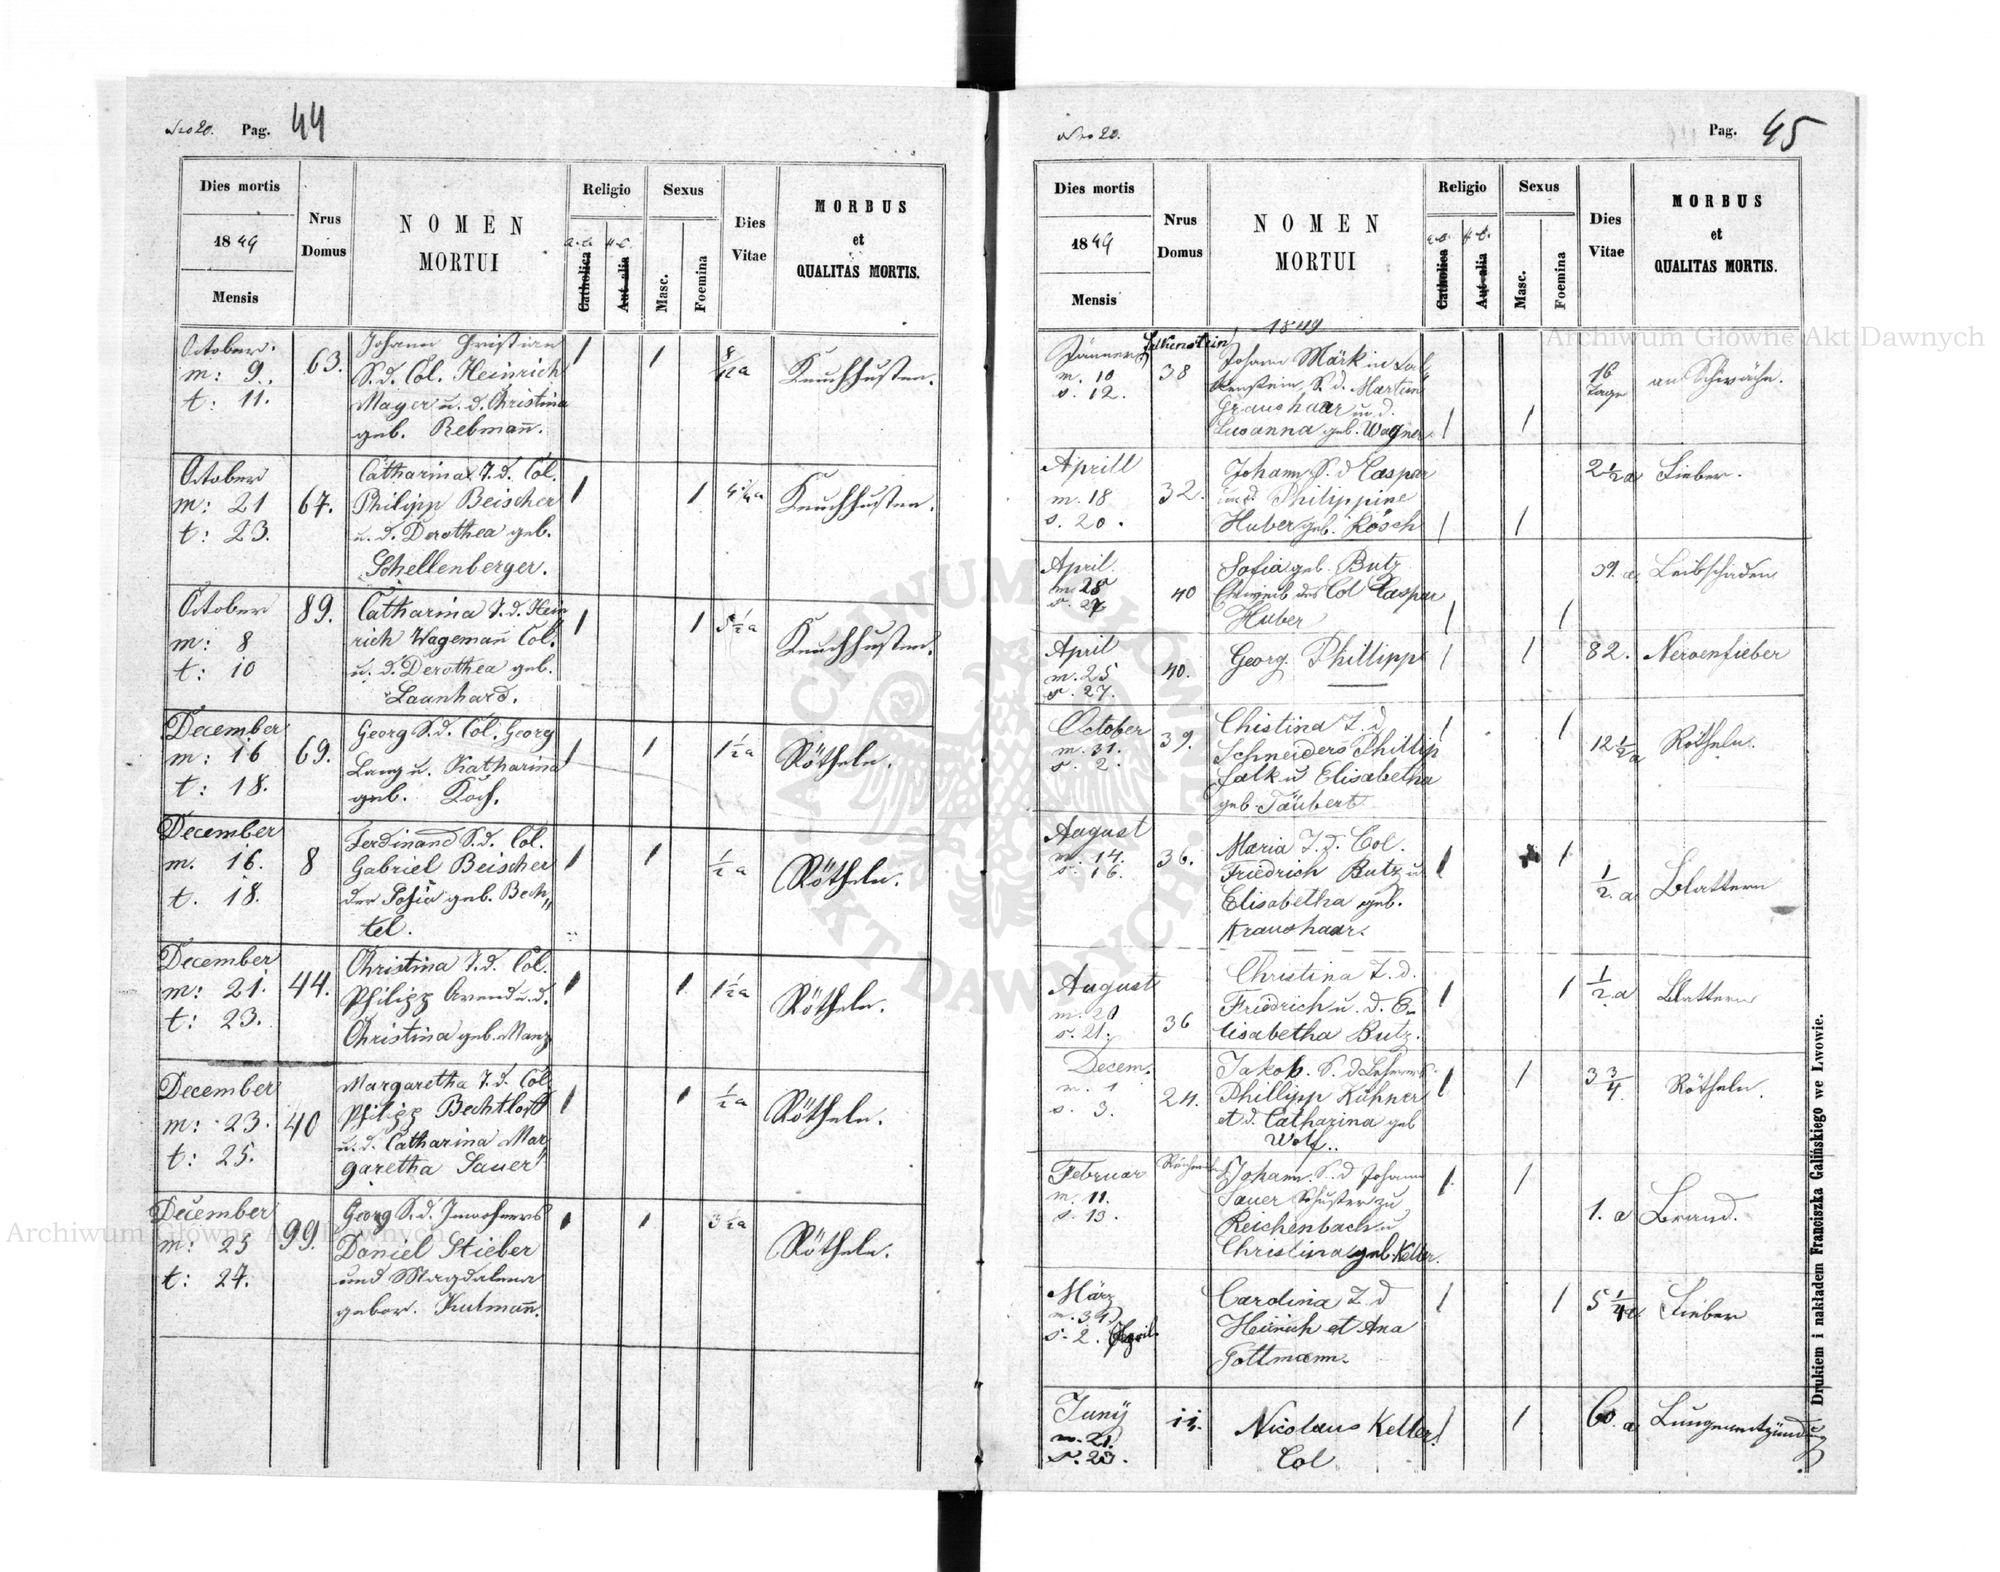 Nro 20. Pag. 44
Dies mortis
1849
Mensis
Nrus
Domus
NOMEN
MORTUI
Religio
a. c. H. c.
Catholica
Aut alia
Sexus
Masc.
Foemina
Dies
Vitae
MORBUS
et
QUALITAS MORTIS.
October. 63. Johann Christian 1 1 8/12 a Keuchhusten.
m: 9. S. d. Col. Heinrich
t: 11. Mayer u. d. Christina
geb. Rebmañ.
October 67. Catharina T. d. Col. 1 1 4 1/4 a Keuchhusten.
m: 21 Philipp Beischer
t: 23. u. d. Dorothea geb.
Schellenberger.
October 89. Catharina T. d. Hein 1 1 5 1/2 a Keuchhusten.
m: 8 rich Wagemañ Col.
t: 10 u. d. Dorothea geb.
Laanhard.
December 69. Georg S. d. Col. Georg 1 1 1 1/2 a Rötheln.
m: 16 Lang u. Katharina
t: 18. geb. Koch.
December 8 Ferdinand S. d. Col. 1 1 1/2 a Rötheln.
m. 16. Gabriel Beischer
t. 18. der Sofia geb. Bech„
tel.
December 44. Christina T. d. Col. 1 1 1 1/2 a Rötheln.
m: 21. Philipp Arend u. d.
t: 23. Christina geb. Manz
December 40 Margaretha T. d. Col. 1 1 1/2 a Rötheln.
m: 23. Philipp Bechtloff
t: 25. u. d. Catharina Mar
garetha Sauer
December 99. Georg S. d. Inwohners 1 1 3 1/2 a Rötheln.
m: 25 Daniel Stieber
t: 27. und Magdalena
gebor. Kulmañ.
Nro 20. Pag. 45
Dies mortis
1849
Mensis
Nrus
Domus
NOMEN
MORTUI
Religio
a. c. H. c.
Catholica
Aut alia
Sexus
Masc.
Foemina
Dies
Vitae
MORBUS
et
QUALITAS MORTIS.
1849
Jänner Falkenstein 38 Johann Märk in Fal 1 1 16 Tage an Schwäche.
m. 10 kenstein, S. d. Martin
s. 12. Graushaar u. d.
Susanna geb. Wagner
Aprill 32. Johann S. d Caspar 1 1 2 1/2 a Fieber.
m. 18 und Philippine
s. 20. Huber geb. Rösch
April. 40 Sofia geb. Butz 1 1 59. a Leibschaden
m. 25 Eheweib des Col Caspar
s. 27 Huber
April 40. Georg Phillipp 1 1 82. Nervenfieber
m. 25
s. 27.
October 39. Chistina T. d 1 1 12 1/2 a Rötheln.
m. 31. Schneiders Phillip
s. 2. Falk u Elisabetha
geb Täubert
August 36. Maria T. d. Col. 1 1 1/2. a Blattern
m. 14. Friedrich Butz u
s. 16. Elisabetha geb.
Kraushaar.
August 36 Christina T. d. 1 1 1/2. a Blattern
m. 20 Friedrich u. d. E„
s. 21. lisabetha Butz.
Decem. 24. Jakob. S. d Lehrers 1 1 3 3/4 Rötheln.
m. 1 Phillipp Kühner
s. 3. et d. Catharina geb
Wolf..
Februar Johann. S. d Johann 1 1 1. a Brand.
m. 11. Sauer Schuster zu
s. 13. Reichenbach u
Christina geb. Keller.
März Carolina T. d 1 1 5 1/4 a Fieber
m. 31 Heinrich et Ana
s. 2. April Gottmann.
Juny 11. Nicolaus Keller 1 1 60. a Lungenentzündung
m. 21. Col
s. 23.
Drukiem i nakładem Franciszka Galińskiego we Lwowie.
Archiwum Główne Akt Dawnych
Archiwum Główne Akt Dawnych
ARCHIWUM GŁÓWNE
AKT DAWNYCH